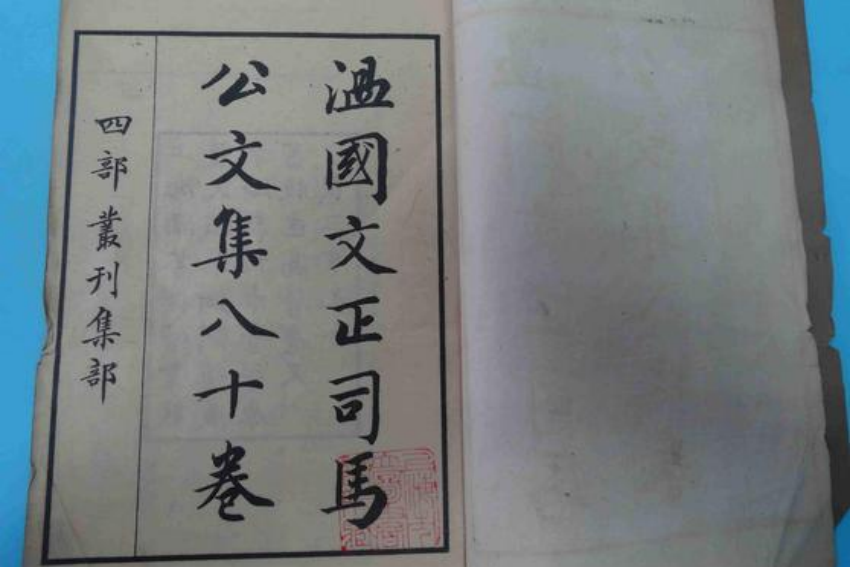 温國文正司馬
公文集八十卷
四部叢刊集部